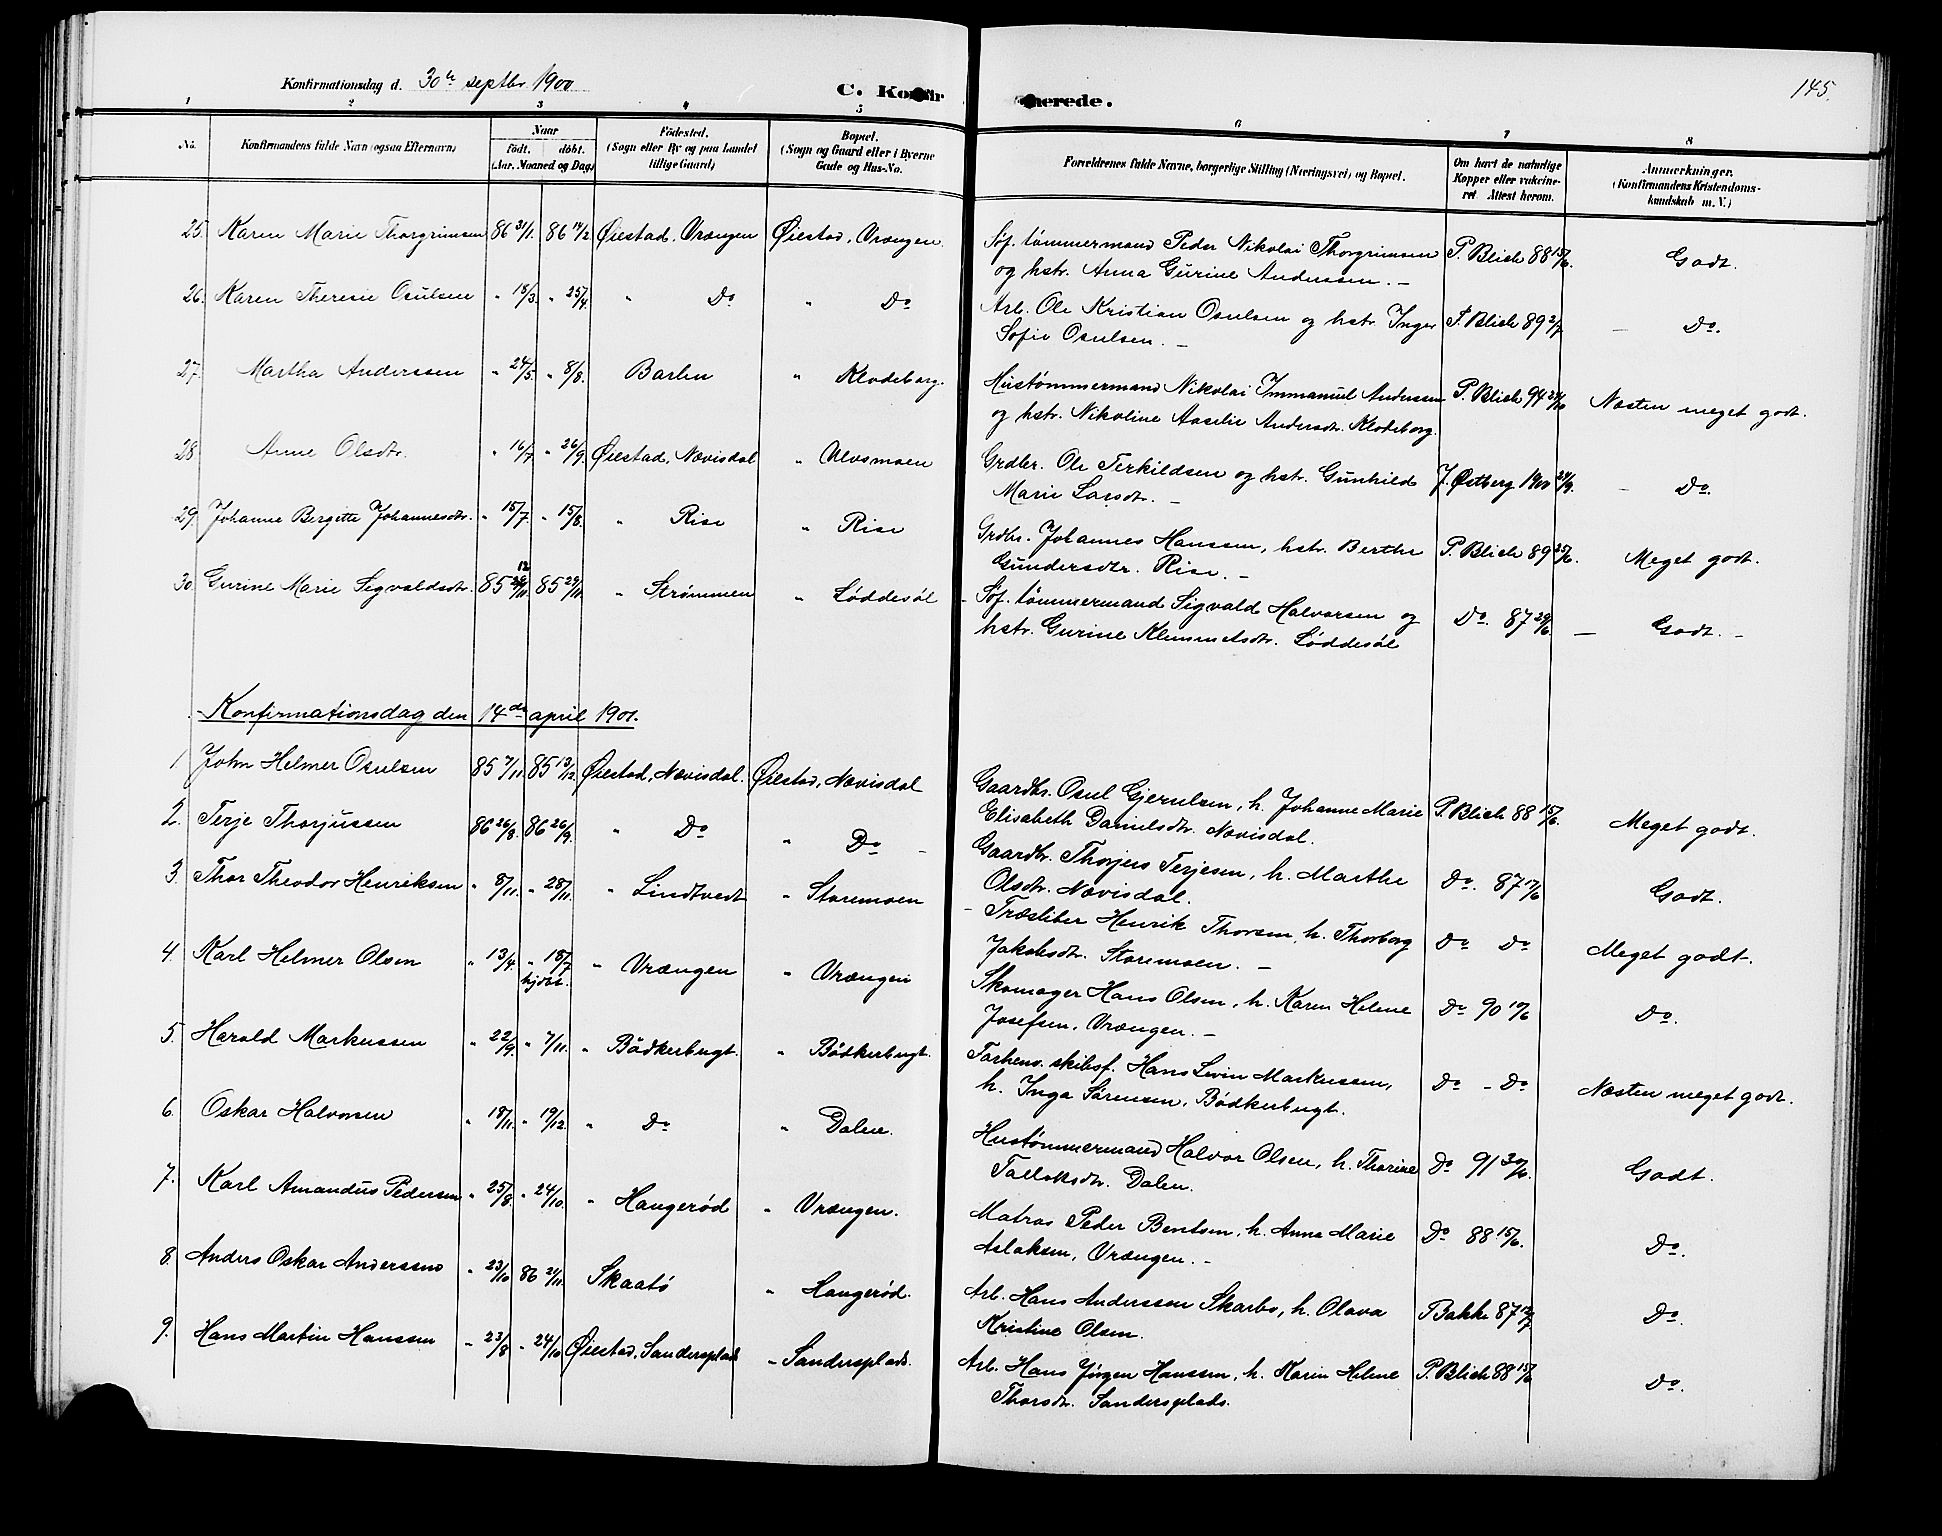 Konfirmationsdag d. 30te septbr. 1900
C. Konfirmerede.
145.
1 2 3 4 5 6 7 8
No. Konfirmandens fulde Navn (ogsaa Efternavn) Naar født. døbt. (Aar, Maaned og Dag) Fødested. (Sogn eller By og paa Landet tillige Gaard) Bopæl. (Sogn og Gaard eller i Byerne Gade og Hus-No. Forældrenes fulde Navne, borgerlige Stilling (Næringsvei) og Bopæl. Om havt de naturlige Kopper eller vakcineret Attest herom. Anmærkninger. (Konfirmandens Kristendomskundskab m. V.)
25. Karen Marie Thorgrimsen 86 31/1. 86 14/2 Øiestad, Vrængen Øiestad, Vrængen Søf. tømmermand Peder Nikolai Thorgrimsen P. Blich 88 15/6. Godt.
og hstr. Anna Gurine Anderssen. –
26. Karen Theresie Osulsen " 18/3. " 25/4. " Do " Do Arb. Ole Kristian Osulsen og hstr. Inger P. Blich 89 2/7 – Do.
Sofie Osulsen. –
27. Martha Anderssen " 24/5. " 8/8. Barlen " Klodeborg. Hustømmermand Nikolai Immanuel Anderssen P. Blich 94 24/10 Næsten meget godt.
og hstr. Nikoline Aaselie Andersdtr. Klodeborg.
28 Anne Olsdtr. " 16/7. " 26/9. Øiestad, Nævisdal " Ulvsmoen Grdbr. Ole Terkildsen og hstr. Gunhild J. Østberg 1900 24/9. – Do.
Marie Larsdtr. –
29. Johanne Bergitte Johannesdtr. " 18/7. " 15/8. " Rise " Rise Grdbr. Johannes Hanssen, hstr. Berthe P. Blich 89 25/6. Meget godt.
Gundersdtr. Rise. –
30. Gurine Marie Sigvaldsdtr. 85 85 29/11. " Strømmen " Løddesøl Søf. tømmermand Sigvald Halvorsen og Do. 87 29/6. – Godt. –
hstr. Gurine Klemmetsdtr. Løddesøl
Konfirmationsdag den 14de april 1901.
1 John Helmer Osulsen 85 7/11. 85 13/12. Øiestad, Nævisdal. Øiestad, Nævisdal Gaardbr. Osul Gjerulsen, h. Johanne Marie P. Blich 88 15/6. Meget godt.
Elisabeth Danielsdtr. Nævisdal.
2. Terje Thorjussen 86 26/8. 86 26/9. " Do " Do – Gaardbr. Thorjus Terjesen, h. Marthe Do. 87 17/6 Godt.
Olsdtr. Nævisdal.
3. Thor Theodor Henriksen " 8/11. " 28/11. " Lindtvedt " Staremoen – Træsliber Henrik Thorsen, h. Thorborg Do Do Meget godt.
Jakobsdtr. Staremoen. –
4. Karl Helmer Olsen " 13/4. " 18/7 hjdøt. " Vrængen " Vrængen Skomager Hans Olsen, h. Karen Helene Do 90 10/6 Do.
Josefsen, Vrængen. –
5. Harald Markussen " 22/9. " 7/11. " Bödkerbugt. " Bödkerbugt. Forhenv. skibsf. Hans Levin Markussen, Do – Do Næsten meget godt.
h. Inga Sørensen, Bödkerbugt.
6. Oskar Halvorsen " 18/11. " 19/12. " Do " Dalen. Hustømmermand Halvor Olsen, h. Thorine Do 91 30/6. Godt.
Talleksdtr. Dalen.
7. Karl Amandus Pedersen " 25/8. " 24/10. " Haugerød " Vrængen. Matros Peder Bentsen, h. Anna Marie Do 88 15/6. Do.
Aslaksen, Vrængen. –
8. Anders Oskar Anderssen " 23/10 86 21/11. Skaatø " Haugerød. Arb. Hans Anderssen Skarbo, h. Olava Bakke 87 12/7 Do.
Kristine Olsen.
9. Hans Martin Hanssen " 23/8 " 24/10 Øiestad, Sandersplads " Sandersplads. Arb. Hans Jörgen Hanssen, h. Karen Helene P. Blich 88 15/6 Do.
Thorsdtr. Sandersplads.